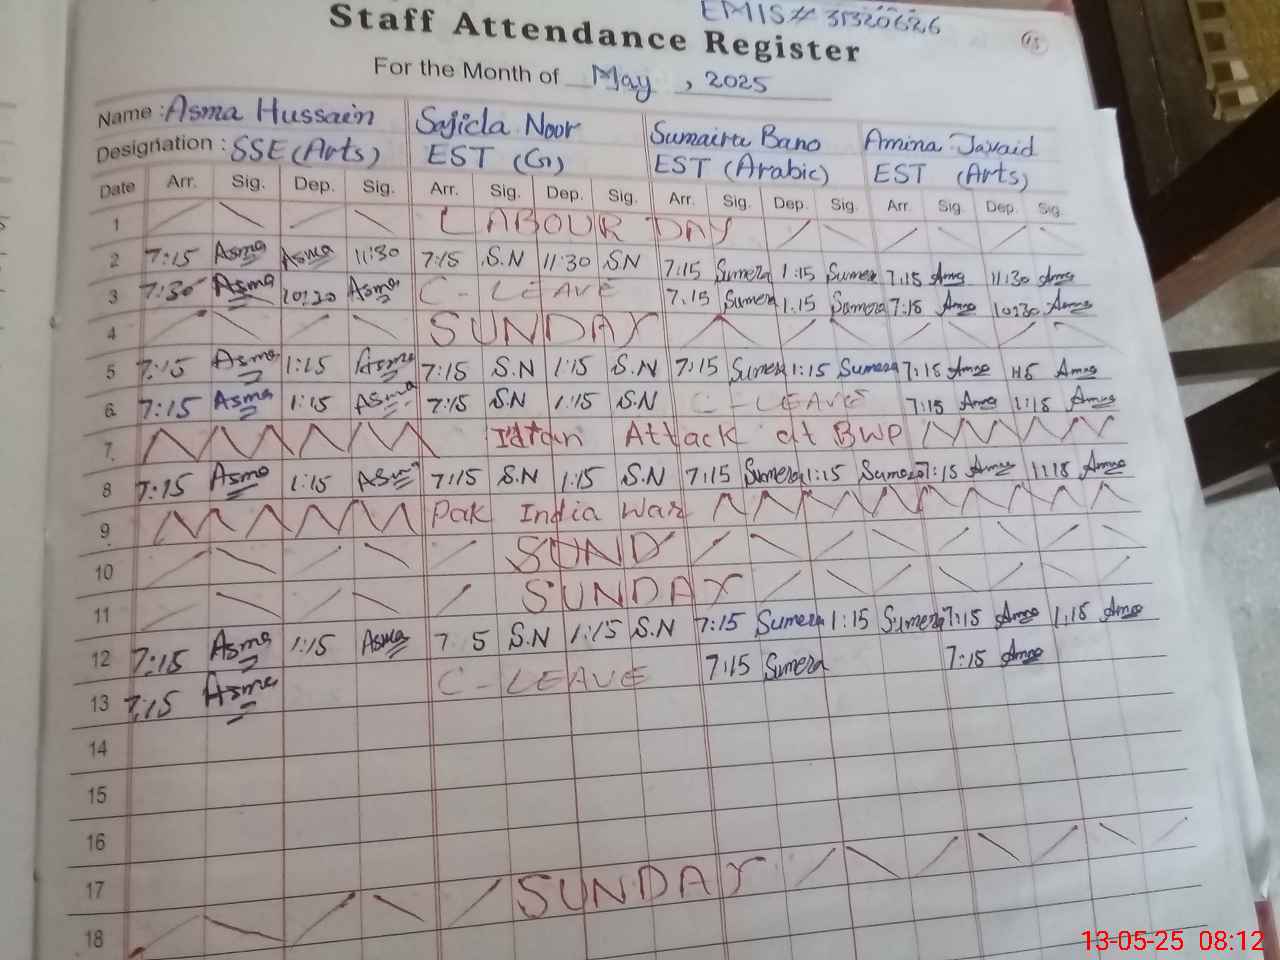 EMIS# 31320626
Staff Attendance Register
For the Month of May, 2025
Name : Asma Hussain Sajida Noor Sumaira Bano Amina Javaid
Designation : SSE (Arts) EST (G) EST (Arabic) EST (Arts)
Date Arr. Sig. Dep. Sig. Arr. Sig. Dep. Sig. Arr. Sig. Dep. Sig. Arr. Sig. Dep. Sig.
1 LABOUR DAY
2 7:15 Asma Asma 11:30 7:15 S.N 11:30 SN 7:15 Sumera 1:15 Sumera 7:15 Amna 11:30 Amna
3 7:30 Asma 10:20 Asma C-LEAVE 7:15 Sumera 1:15 Sumera 7:15 Amna 10:30 Amna
4 SUNDAY
5 7:15 Asma 1:15 Asma 7:15 S.N 1:15 S.N 7:15 Sumera 1:15 Sumera 7:15 Amna 1:15 Amna
6 7:15 Asma 1:15 Asma 7:15 S.N 1:15 S.N C-LEAVE 7:15 Amna 1:15 Amna
7 Attack at BWP
8 7:15 Asma 1:15 Asma 7:15 S.N 1:15 S.N 7:15 Sumera 1:15 Sumera 7:15 Amna 1:15 Amna
9 Pak India War
10 SUND
11 SUNDAY
12 7:15 Asma 1:15 Asma 7 5 S.N 1:15 S.N 7:15 Sumera 1:15 Sumera 7:15 Amna 1:15 Amna
13 7:15 Asma C-LEAVE 7:15 Sumera 7:15 Amna
14
15
16
17
18 SUNDAY
13-05-25 08:12